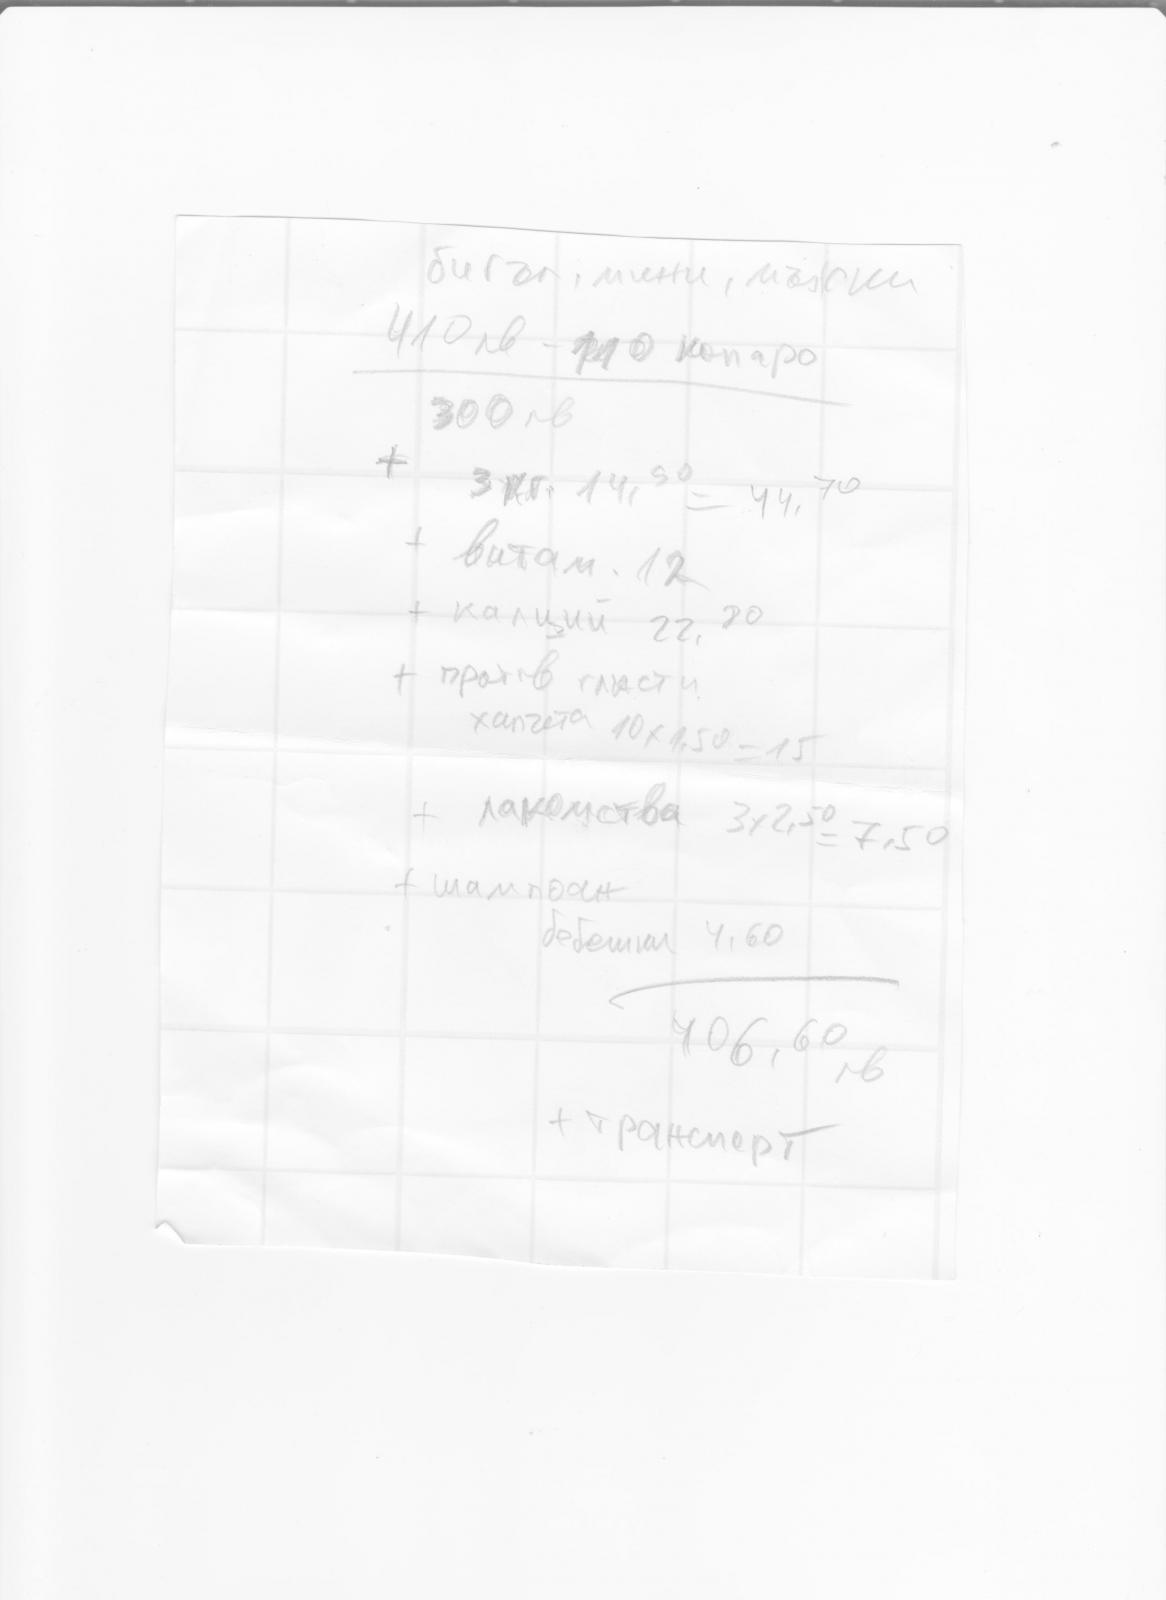 бигъл, мини, мъжки
410 лв - 110 капаро
300 лв
+ 3 кг. 14,90 = 44,70
+ витам. 12
+ калций 22,80
+ против глисти
хапчета 10 x 1,50 = 15
+ лакомства 3 x 2,50 = 7,50
+ шампоан
бебешки 4,60
406,60 лв
+ транспорт